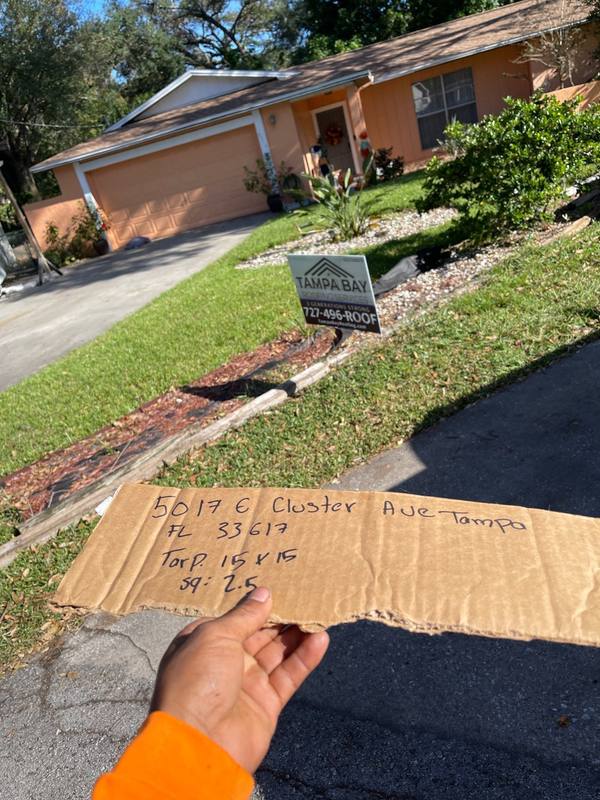 TAMPA BAY
3 GENERATIONS STRONG
727-496-ROOF
5017 E Cluster Ave Tampa
FL 33617
Tarp. 15 x 15
sq: 2.5